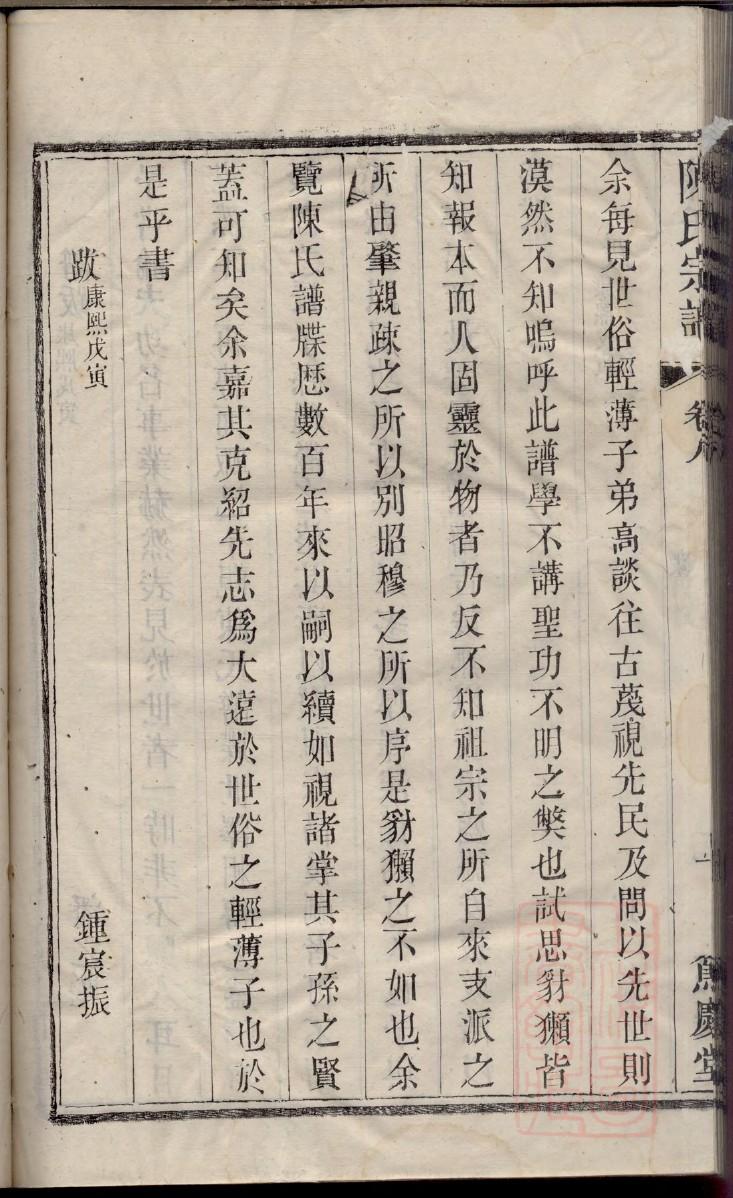 陳氏宗譜 卷首 十一 篤慶堂
余每見世俗輕薄子弟高談往古蔑視先民及問以先世則
漠然不知嗚呼此譜學不講聖功不明之獘也試思豺獺皆
知報本而人固靈於物者乃反不知祖宗之所自來支派之
所由肇親疎之所以別昭穆之所以序是豺獺之不如也余
覽陳氏譜牒歷數百年來以嗣以續如視諸掌其子孫之賢
蓋可知矣余嘉其克紹先志爲大遠於世俗之輕薄子也於
是乎書
跋康熙戊寅 鍾宸振